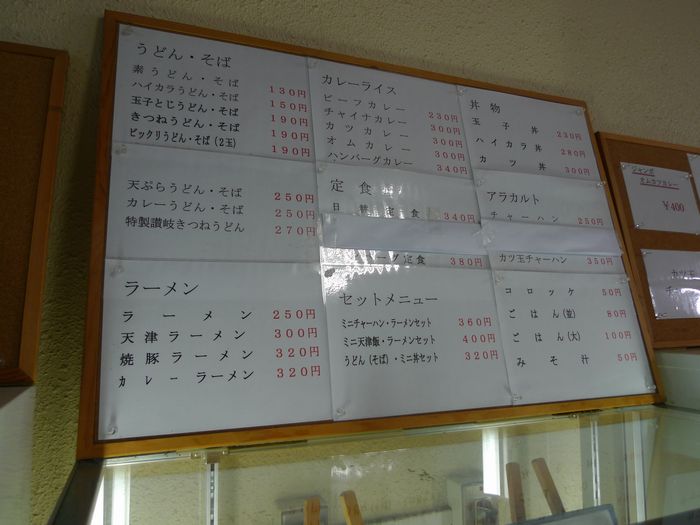 うどん・そば
素うどん・そば 130円
ハイカラうどん・そば 150円
玉子とじうどん・そば 190円
きつねうどん・そば 190円
ビックリうどん・そば(2玉) 190円
天ぷらうどん・そば 250円
カレーうどん・そば 250円
特製讃岐きつねうどん 270円
ラーメン
ラーメン 250円
天津ラーメン 300円
焼豚ラーメン 320円
カレーラーメン 320円
カレーライス
ビーフカレー 230円
チャイナカレー 300円
カツカレー 300円
オムカレー 300円
ハンバーグカレー 340円
定食
日替定食 340円
定食 380円
セットメニュー
ミニチャーハン・ラーメンセット 360円
ミニ天津飯・ラーメンセット 400円
うどん(そば)・ミニ丼セット 320円
丼物
玉子丼 230円
ハイカラ丼 280円
カツ丼 300円
アラカルト
チャーハン 250円
カツ玉チャーハン 350円
コロッケ 50円
ごはん(並) 80円
ごはん(大) 100円
みそ汁 50円
ジャンボ
オムカツカレー
¥400
カツ玉